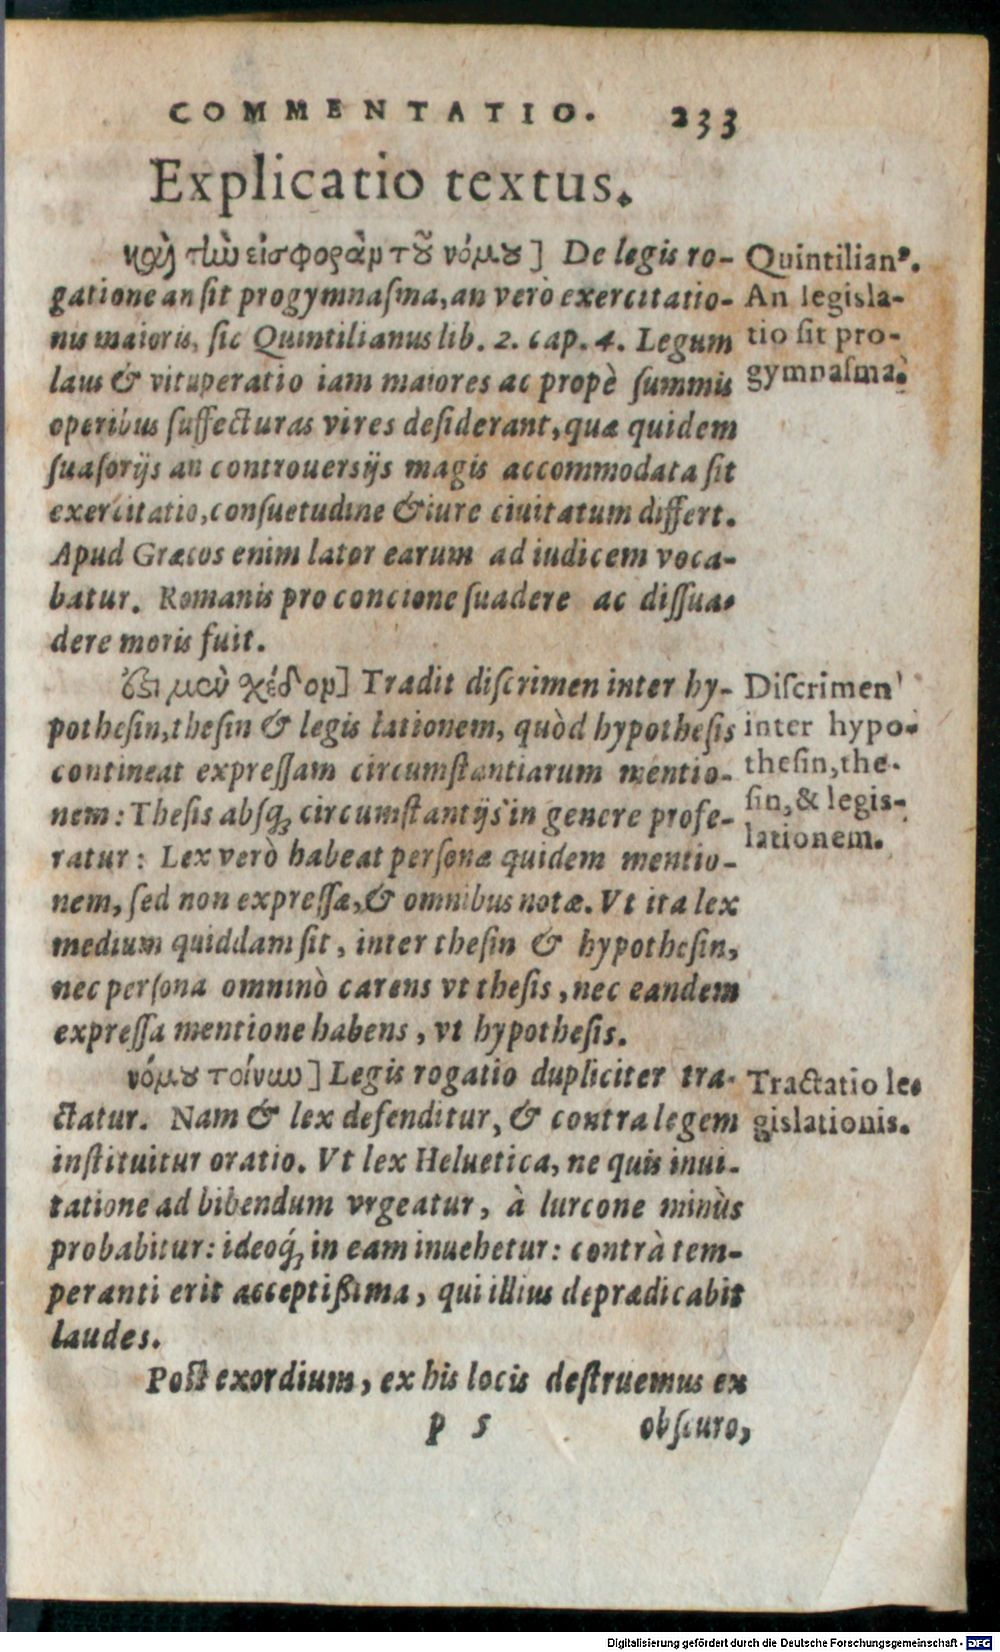 COMMENTATIO. 233
Explicatio textus.
καὶ τὼ εἰσφορὰν τοῦ νόμου] De legis ro-
gatione an sit progymnasma, an verò exercitatio-
nis maioris, sic Quintilianus lib. 2. cap. 4. Legum
laus & vituperatio iam maiores ac propè summis
operibus suffecturas vires desiderant, quæ quidem
suasorijs an controuersijs magis accommodata sit
exercitatio, consuetudine & iure ciuitatum differt.
Apud Græcos enim lator earum ad iudicem voca-
batur. Romanis pro concione suadere ac dissua-
dere moris fuit.
Quintilian⁹.
An legisla-
tio sit pro-
gymnasma.
ἐπὶ μὲν σχέδον] Tradit discrimen inter hy-
pothesin, thesin & legis lationem, quòd hypothesis
contineat expressam circumstantiarum mentio-
nem: Thesis absq; circumstantijs in genere profe-
ratur: Lex verò habeat personæ quidem mentio-
nem, sed non expressæ, & omnibus notæ. Vt ita lex
medium quiddam sit, inter thesin & hypothesin,
nec persona omninò carens vt thesis, nec eandem
expressa mentione habens, vt hypothesis.
Discrimen
inter hypo-
thesin, the-
sin, & legis-
lationem.
νόμου τοίνυν] Legis rogatio dupliciter tra-
ctatur. Nam & lex defenditur, & contra legem
instituitur oratio. Vt lex Heluetica, ne quis inui-
tatione ad bibendum vrgeatur, à lurcone minùs
probabitur: ideoq; in eam inuehetur: contrà tem-
peranti erit acceptißima, qui illius deprædicabit
laudes.
Tractatio le-
gislationis.
Post exordium, ex his locis destruemus ex
p 5 obscuro,
Digitalisierung gefördert durch die Deutsche Forschungsgemeinschaft - DFG